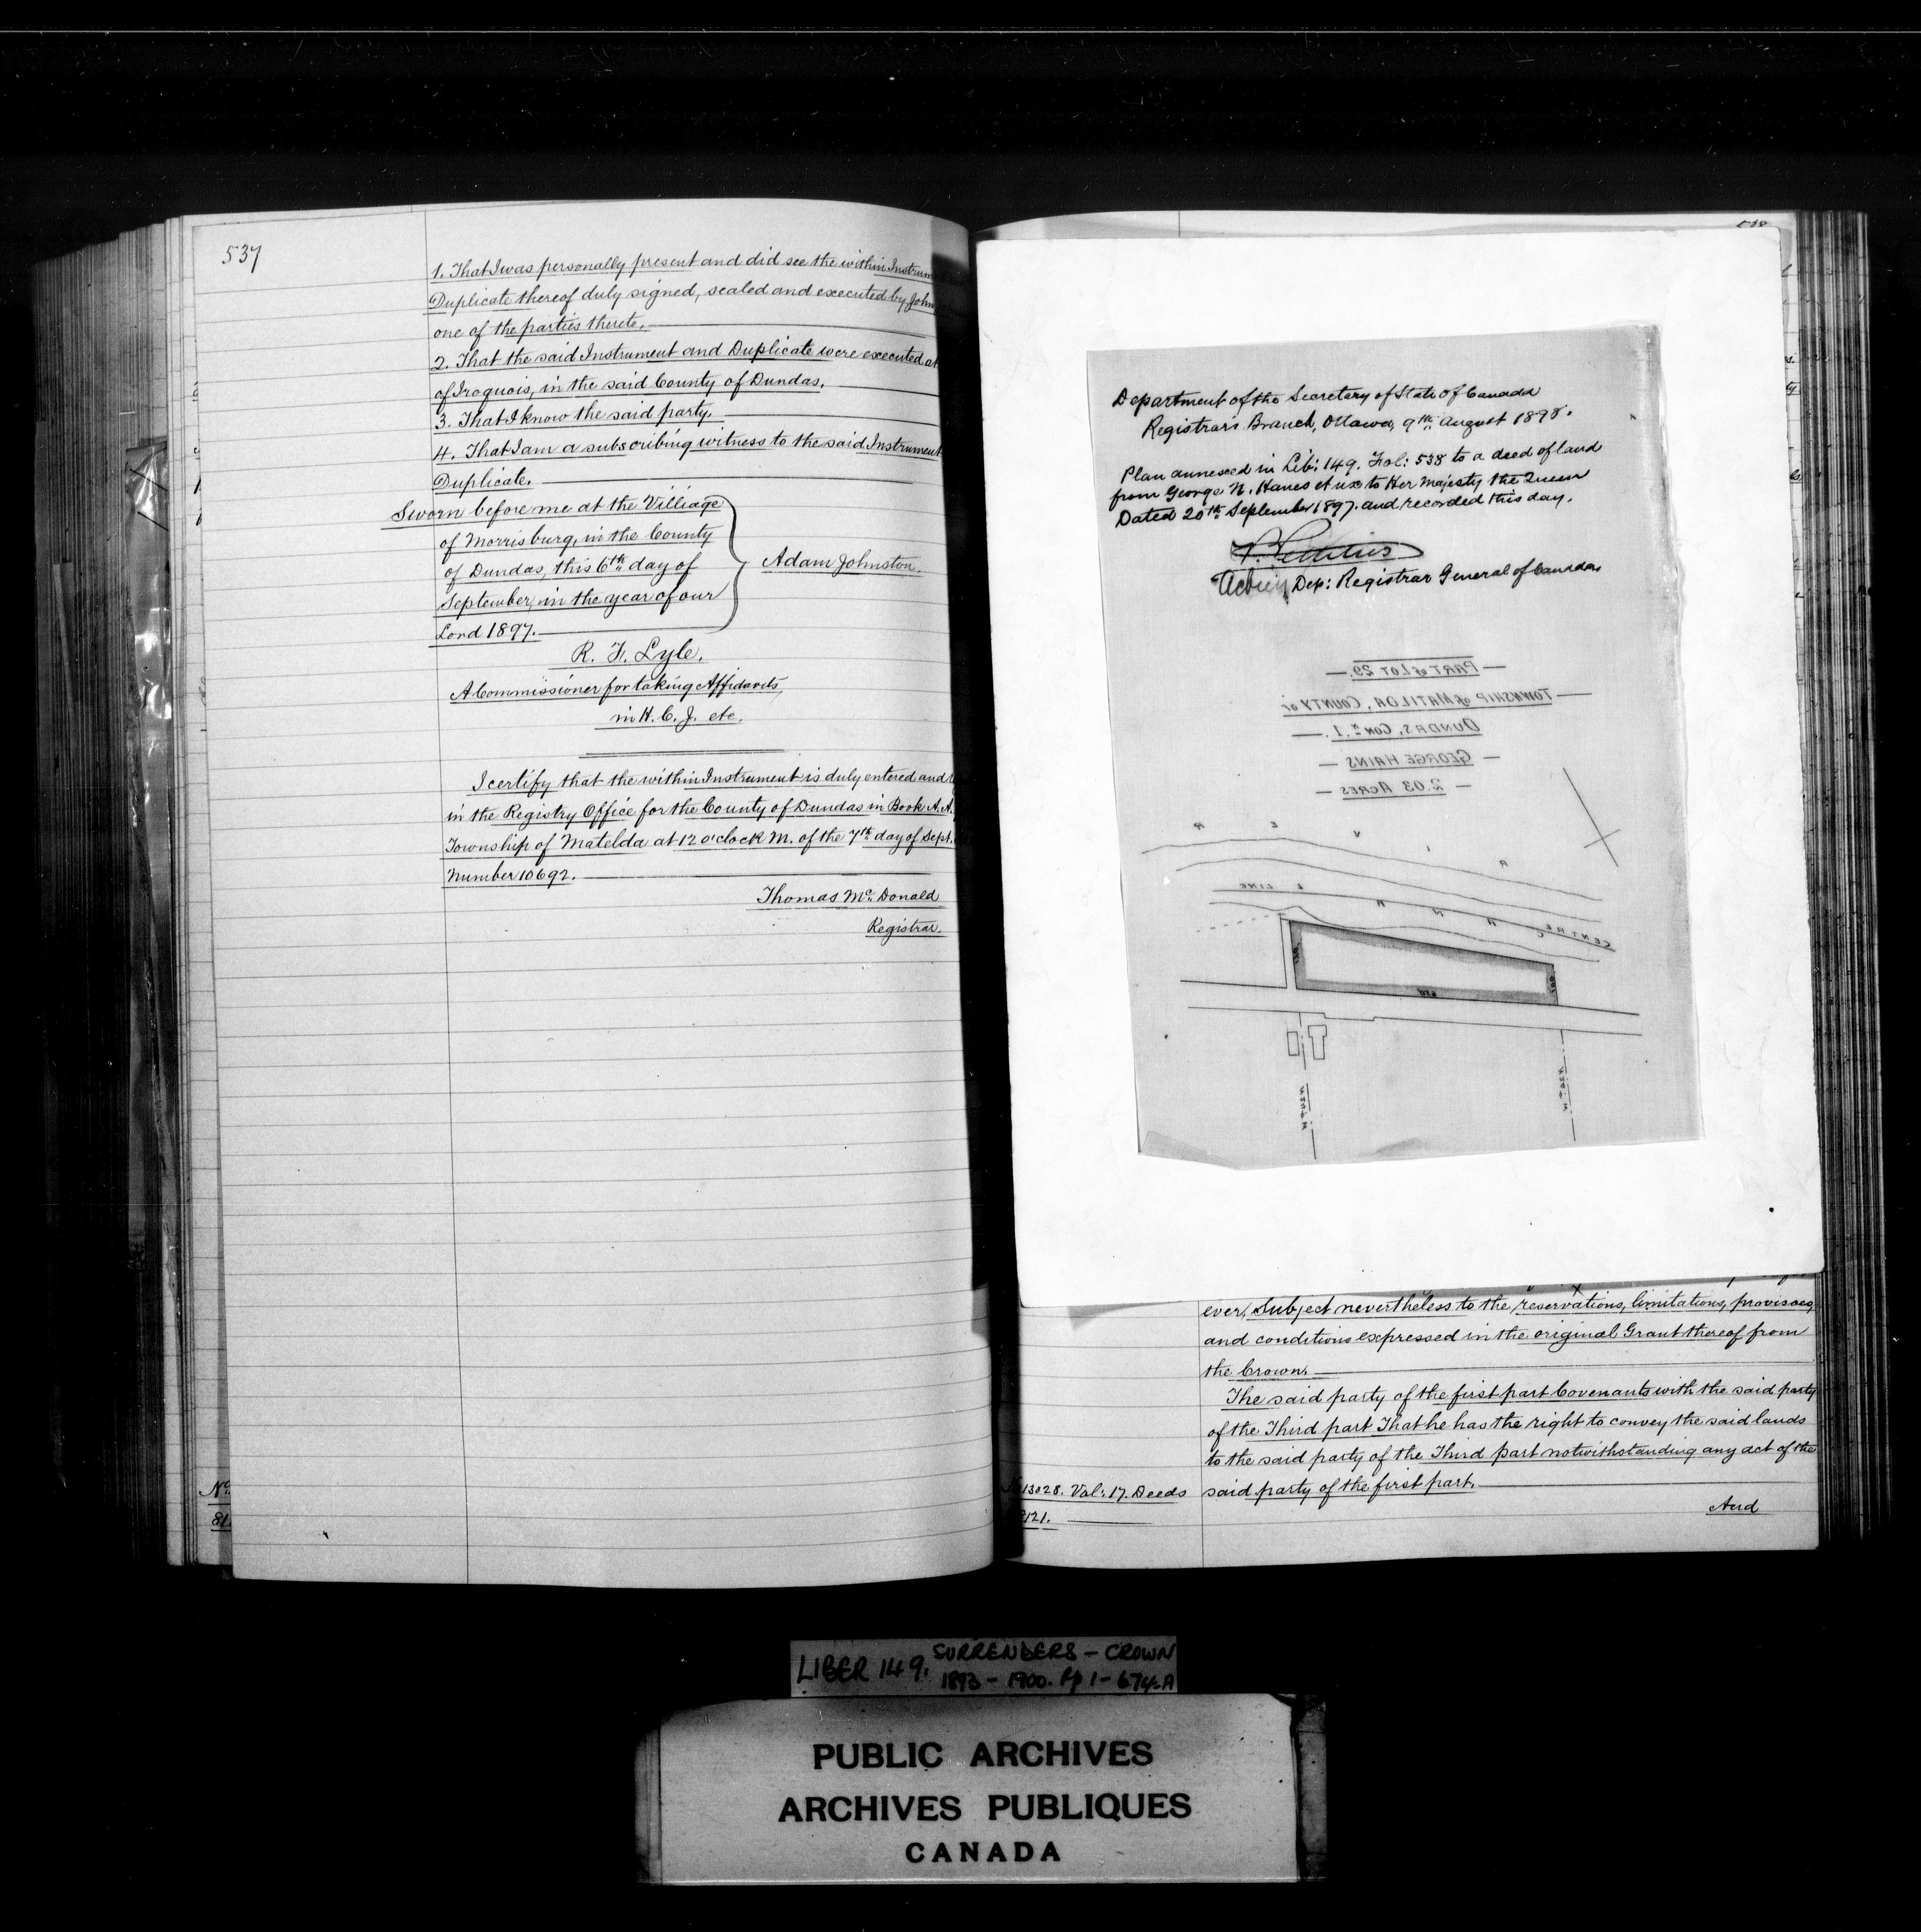 537
1. That I was personally present and did see the within Instrum
Duplicate thereof duly signed, sealed and executed by John
one of the parties thereto.
2. That the said Instrument and Duplicate were executed at
of Iroquois, in the said County of Dundas.
3. That I know the said party.
4. That I am a subscribing witness to the said Instrument
Duplicate.
Sworn before me at the Villiage
of Morrisburg, in the County
of Dundas, this 6th day of
September, in the year of our
Lord 1897.
Adam Johnston.
R. F. Lyle.
A Commissioner for taking Affidavits,
in H. C. J. etc.
I certify that the within Instrument is duly entered and
in the Registry Office for the County of Dundas in Book A. A.
Township of Matelda at 12 o'clock M. of the 7th day of Sept.
Number 10692.
Thomas Mc. Donald
Registrar.
No.
81
538
Department of the Secretary of State of Canada
Registrar's Branch, Ottawa, 9th August 1898.
Plan annexed in Lib: 149. Fol: 538 to a deed of land
from George N. Hanes et ux to Her Majesty the Queen
Dated 20th September 1897. and recorded this day.
Acting Dep: Registrar General of Canada
PART of LOT 29.
TOWNSHIP of MATILDA, COUNTY of
DUNDAS, Con n. 1.
GEORGE HAINS
2.03 ACRES
R I V E R
CENTRE LINE
C A N A L
ever, Subject nevertheless to the reservations, limitations, provisoes,
and conditions expressed in the original Grant thereof from
the Crown.
The said party of the first part Covenants with the said party
of the Third part That he has the right to convey the said lands
to the said party of the Third part notwithstanding any act of the
said party of the first part.
13028. Vol: 17. Deeds
121.
And
LIBER 149. SURRENDERS - CROWN
1893 - 1900. Pp 1 - 674-A
PUBLIC ARCHIVES
ARCHIVES PUBLIQUES
CANADA